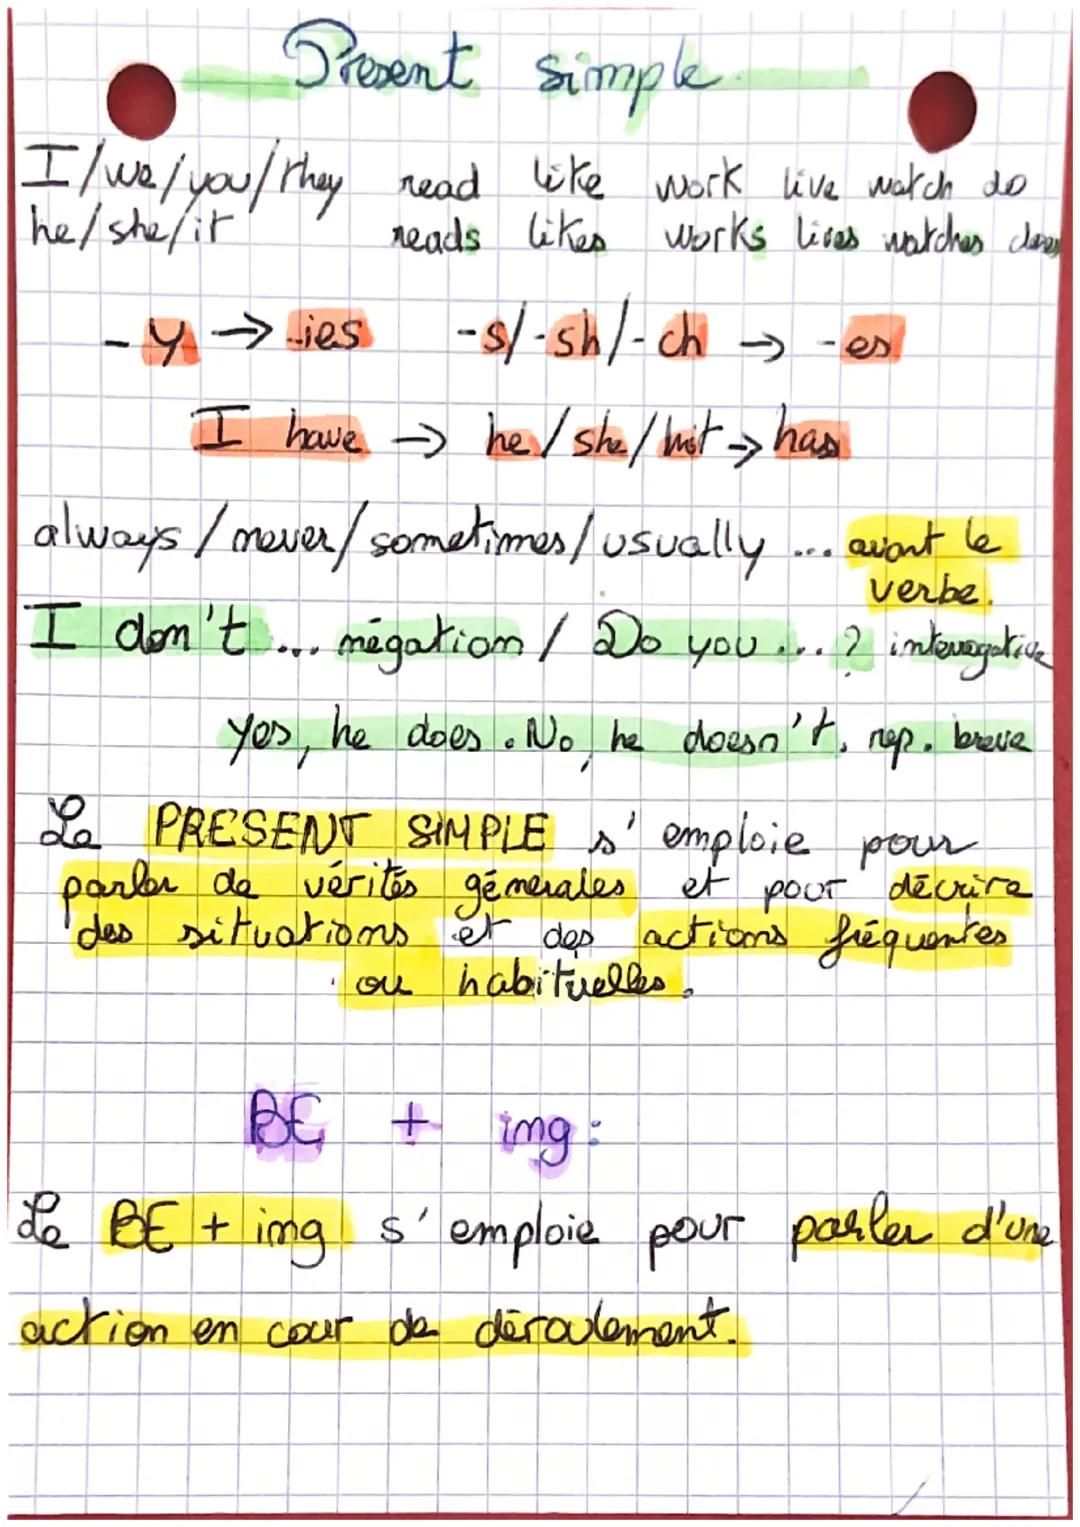 Present simple
I/we/you/they read like work live watch do
he/she/it reads likes works lives watches does
- y → -ies -s/-sh/-ch → -es
I have → he/she/ it → has
always / never/ sometimes/ usually ... avant le
verbe.
I don't ... négation / Do you ... ? interrogative
yes, he does. No, he doesn't. rep. breve
Le PRESENT SIMPLE s'emploie pour
parler de vérités génerales et pour décrire
des situations et des actions fréquentes
ou habituelles.
BE + ing :
Le BE + ing s'emploie pour parler d'une
action en cour de déroulement.